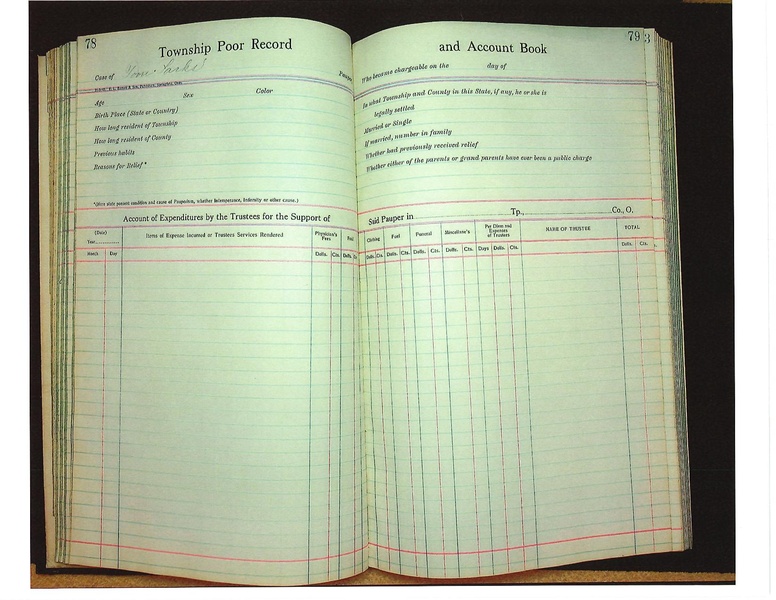 78
Township Poor Record
Case of
Age Sex Color
Birth Place (State or Country)
How long resident of Township
How long resident of County
Previous habits
Reasons for Relief*
*(Give state present condition and cause of Pauperism, whether Intemperance, Infirmity or other cause.)
Account of Expenditures by the Trustees for the Support of
(Date)
Year
Items of Expense Incurred or Trustees Services Rendered
Physician's Fees
Month Day
Dolls. Cts. Dolls.
79 3
and Account Book
Who became chargeable on the day of
In what Township and County in this State, if any, he or she is
legally settled
Married or Single
If married, number in family
Whether had previously received relief
Whether either of the parents or grand parents have ever been a public charge
Said Pauper in Tp., Co., O.
Clothing Fuel Funeral Miscellan's Per Diem and Expenses of Trustees NAME OF TRUSTEE TOTAL
Dolls. Cts. Dolls. Cts. Dolls. Cts. Dolls. Cts. Days Dolls. Cts. Dolls. Cts.